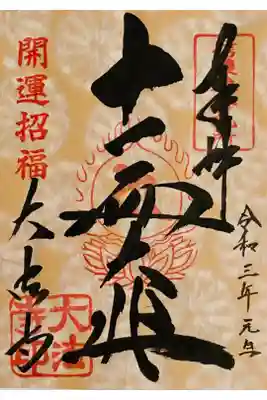 奉拝
令和三年元旦
十一面大悲
開運招福
大法寺